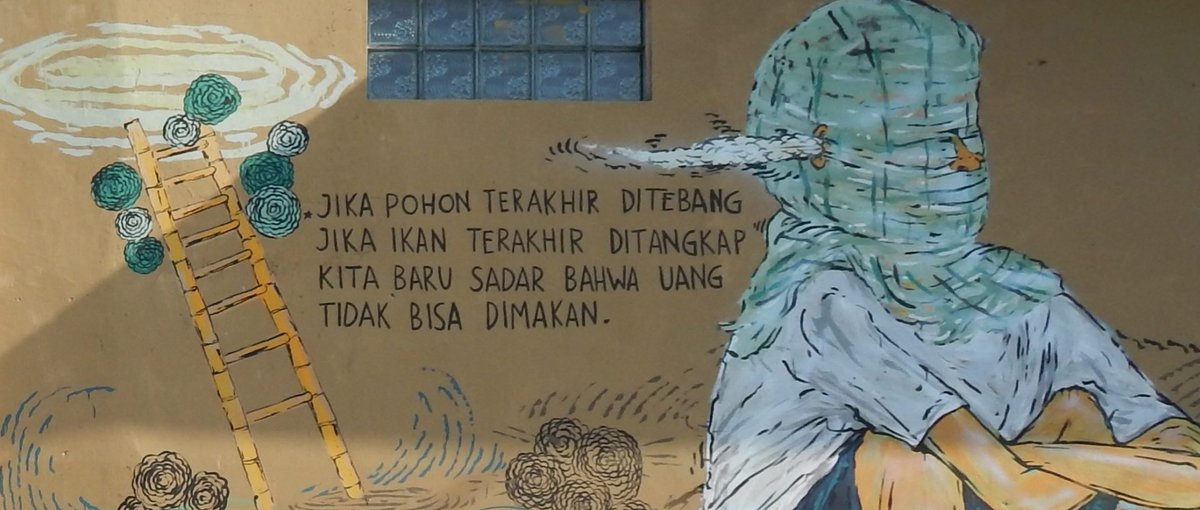 JIKA POHON TERAKHIR DITEBANG
JIKA IKAN TERAKHIR DITANGKAP
KITA BARU SADAR BAHWA UANG
TIDAK BISA DIMAKAN.